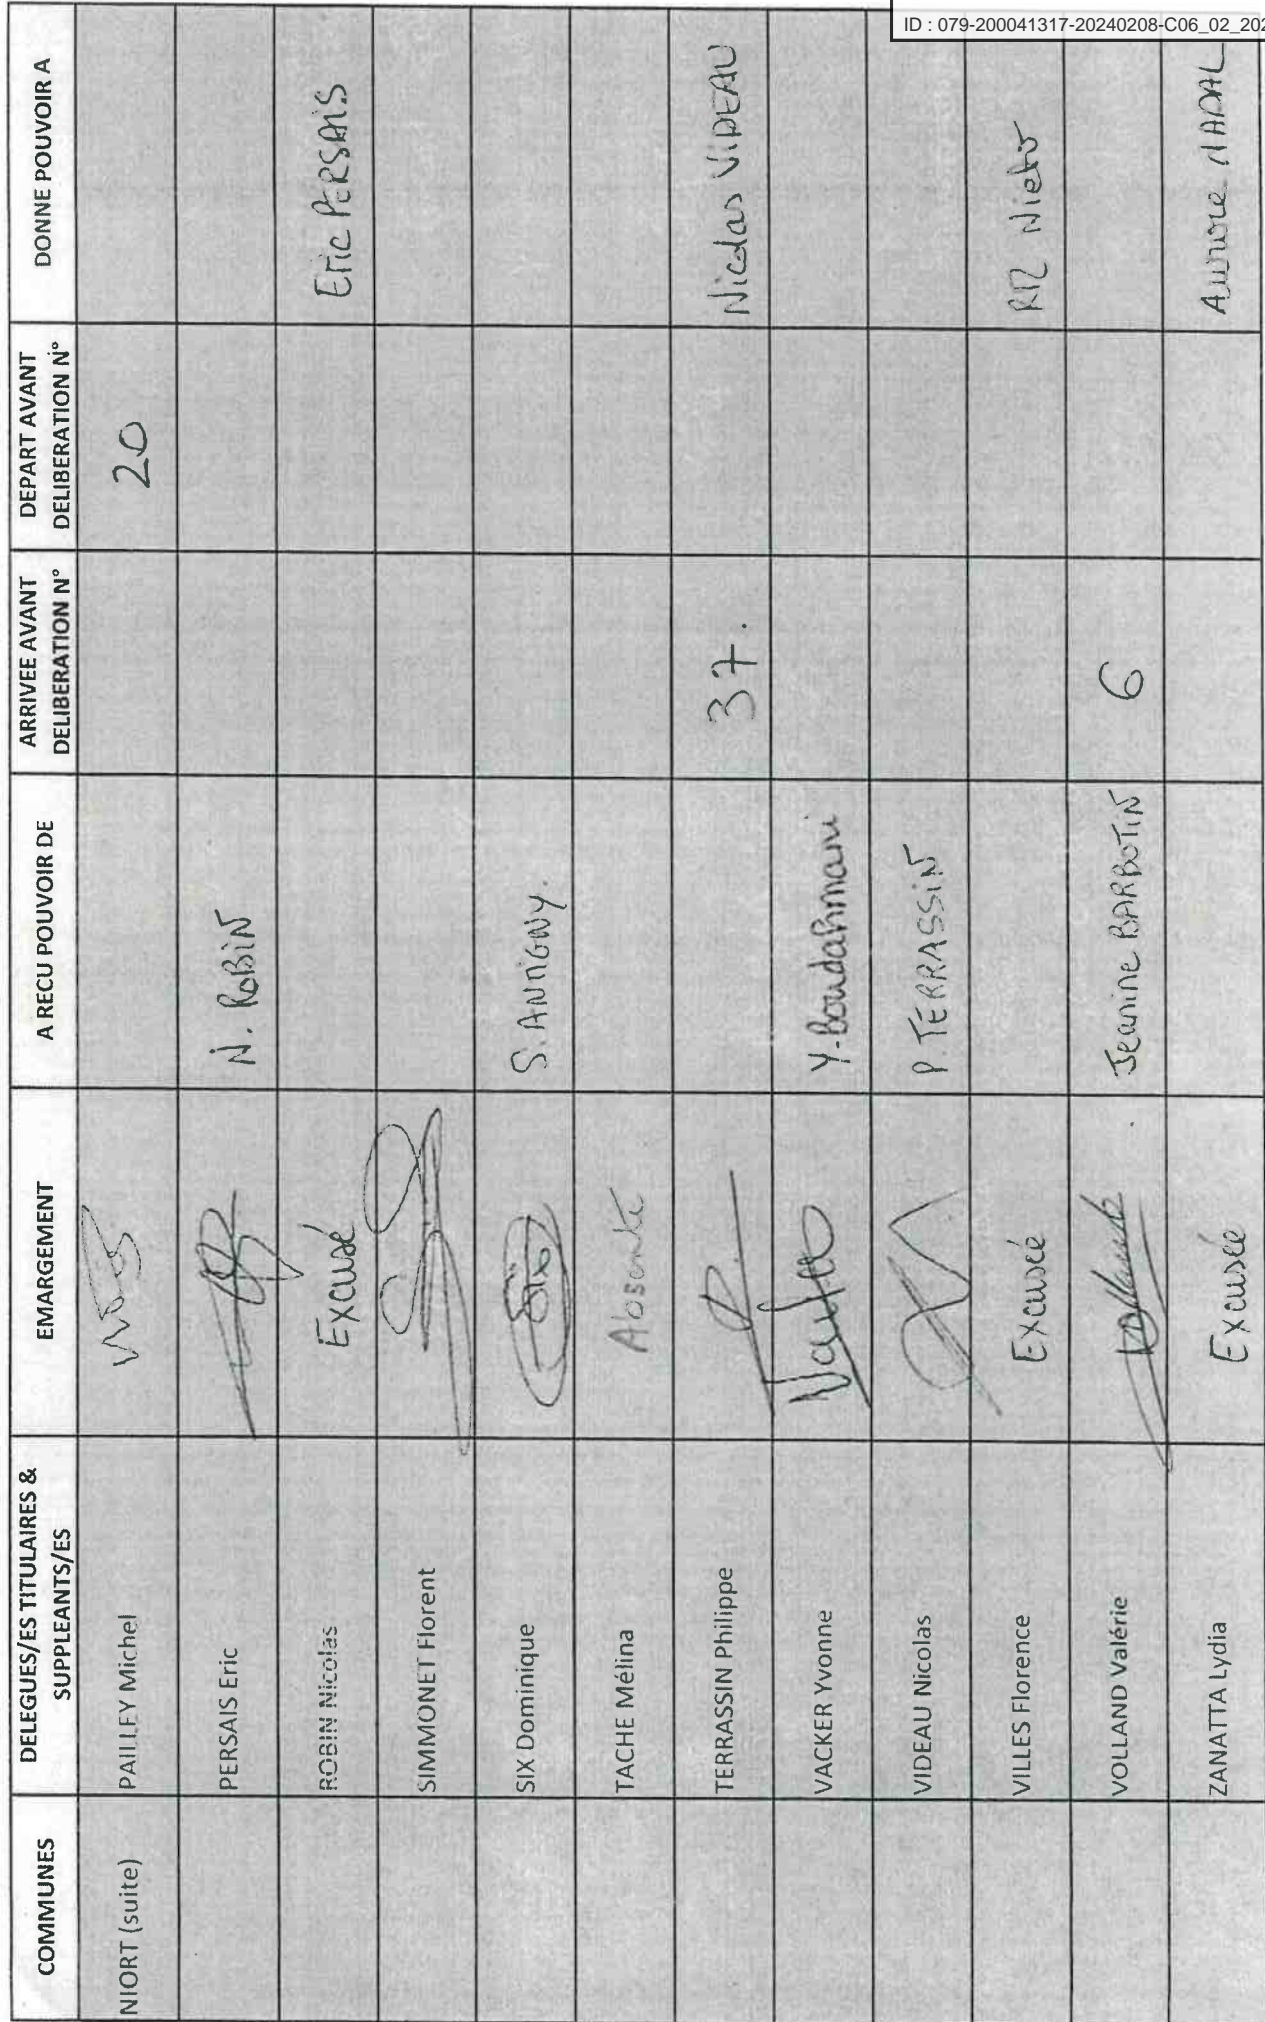 ID : 079-200041317-20240208-C06_02_202
COMMUNES
DELEGUES/ES TITULAIRES &
SUPPLEANTS/ES
EMARGEMENT
A RECU POUVOIR DE
ARRIVEE AVANT
DELIBERATION N°
DEPART AVANT
DELIBERATION N°
DONNE POUVOIR A
NIORT (suite) PAILLEY Michel 20
PERSAIS Eric N. ROBIN
ROBIN Nicolas Excusé Eric PERSAIS
SIMMONET Florent
SIX Dominique Six S. ANTIGNY.
TACHE Mélina Absente
TERRASSIN Philippe 37. Nicolas VIDEAU
VACKER Yvonne Y. Boudahmani
VIDEAU Nicolas P. TERRASSIN
VILLES Florence Excusée Nieto
VOLLAND Valérie Jeanine BARBOTIN 6
ZANATTA Lydia Excusée Aurore NADAL